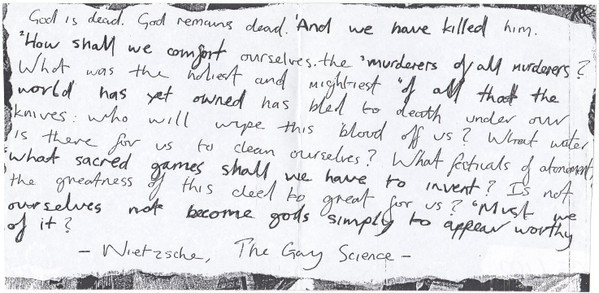 God is dead. God remains dead. And we have killed him.
"How shall we comfort ourselves. the "murderers of all murderers?
What was the holiest and mightiest "of all that the
world has yet owned has bled to death under our
knives: who will wipe this blood off us? What water
is there for us to clean ourselves? What festivals of atonement
"what sacred games shall we have to invent? Is not
the greatness of this deed to great for us? "Must we
ourselves not become gods simply to appear worthy
of it?
- Nietzsche, The Gay Science -